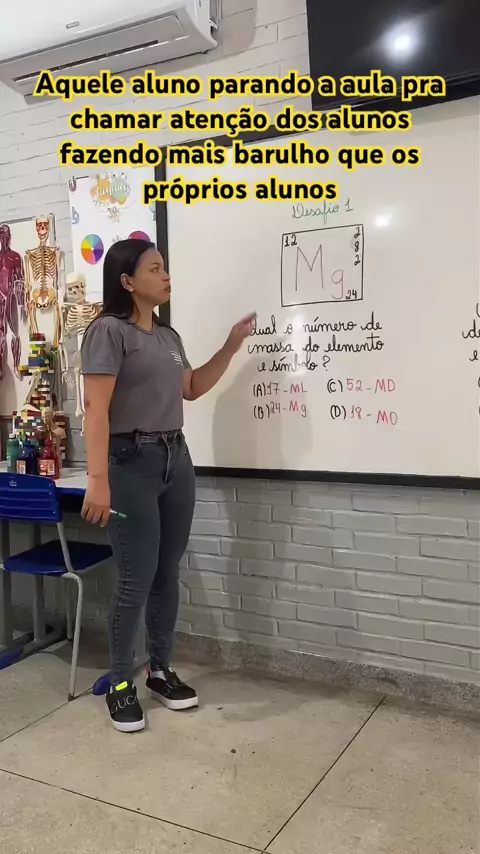 Aquele aluno parando a aula pra
chamar atenção dos alunos
fazendo mais barulho que os
próprios alunos
Desafio 1
12
2
8
2
Mg
24
Qual o número de
massa do elemento
e símbolo?
(A) 17 - ML (C) 52 - MD
(B) 24 - Mg (D) 18 - MO
de
e
GUCCI